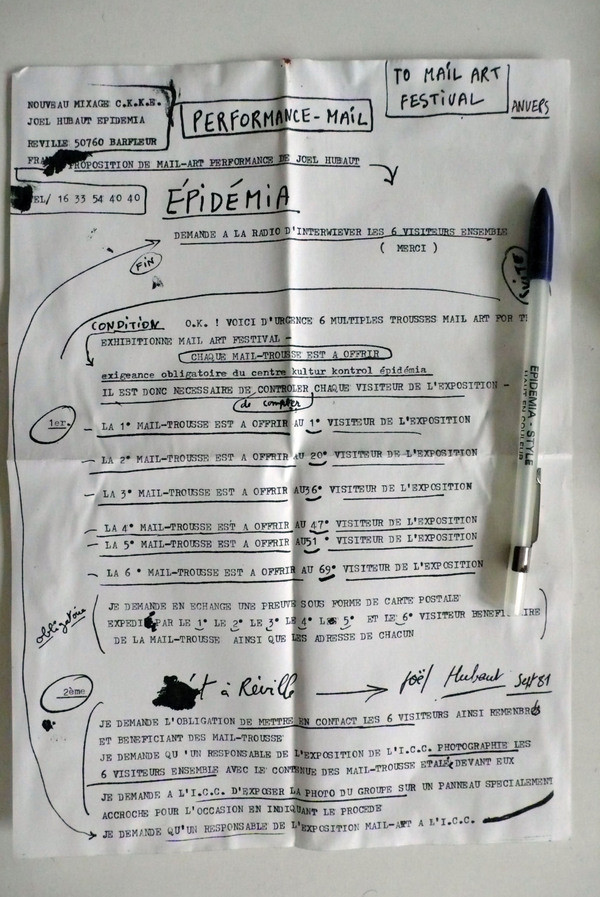 TO MAIL ART
FESTIVAL
ANVERS
NOUVEAU MIXAGE C.K.K.E.
JOEL HUBAUT EPIDEMIA
REVILLE 50760 BARFLEUR
FRA
PERFORMANCE-MAIL
PROPOSITION DE MAIL-ART PERFORMANCE DE JOEL HUBAUT
TEL/ 16 33 54 40 40
ÉPIDÉMIA
DEMANDE A LA RADIO D'INTERWIEVER LES 6 VISITEURS ENSEMBLE
( MERCI )
FIN
SUITE
CONDITION O.K. ! VOICI D'URGENCE 6 MULTIPLES TROUSSES MAIL ART FOR
EXHIBITIONNE MAIL ART FESTIVAL -
CHAQUE MAIL-TROUSSE EST A OFFRIR
exigeance obligatoire du centre kultur kontrol épidémia
IL EST DONC NECESSAIRE DE CONTROLER CHAQUE VISITEUR DE L'EXPOSITION -
de compter
1er.
- LA 1° MAIL-TROUSSE EST A OFFRIR AU 1° VISITEUR DE L'EXPOSITION
- LA 2° MAIL-TROUSSE EST A OFFRIR AU 20° VISITEUR DE L'EXPOSITION
- LA 3° MAIL-TROUSSE EST A OFFRIR AU36° VISITEUR DE L'EXPOSITION
- LA 4° MAIL-TROUSSE EST A OFFRIR AU 47° VISITEUR DE L'EXPOSITION
- LA 5° MAIL-TROUSSE EST A OFFRIR AU51 ° VISITEUR DE L'EXPOSITION
- LA 6 ° MAIL-TROUSSE EST A OFFRIR AU 69° VISITEUR DE L'EXPOSITION
EPIDEMIA - STYLE
HAUT EN COULEUR
obligatoire
JE DEMANDE EN ECHANGE UNE PREUVE SOUS FORME DE CARTE POSTALE
EXPEDIÉ PAR LE 1° LE 2° LE 3° LE 4° LE 5° ET LE 6° VISITEUR BENEFICIAIRE
DE LA MAIL-TROUSSE AINSI QUE LES ADRESSE DE CHACUN
2ème
à Réville → joël Hubaut Sept 81
JE DEMANDE L'OBLIGATION DE METTRE EN CONTACT LES 6 VISITEURS AINSI REMENBRÉS
ET BENEFICIANT DES MAIL-TROUSSE
JE DEMANDE QU 'UN RESPONSABLE DE L'EXPOSITION DE L'I.C.C. PHOTOGRAPHIE LES
6 VISITEURS ENSEMBLE AVEC LE CONTENUE DES MAIL-TROUSSE ETALÉ DEVANT EUX
JE DEMANDE A L'I.C.C. D'EXPOSER LA PHOTO DU GROUPE SUR UN PANNEAU SPECIALEMENT
ACCROCHE POUR L'OCCASION EN INDIQUANT LE PROCEDE
JE DEMANDE QU'UN RESPONSABLE DE L'EXPOSITION MAIL-ART A L'I.C.C.